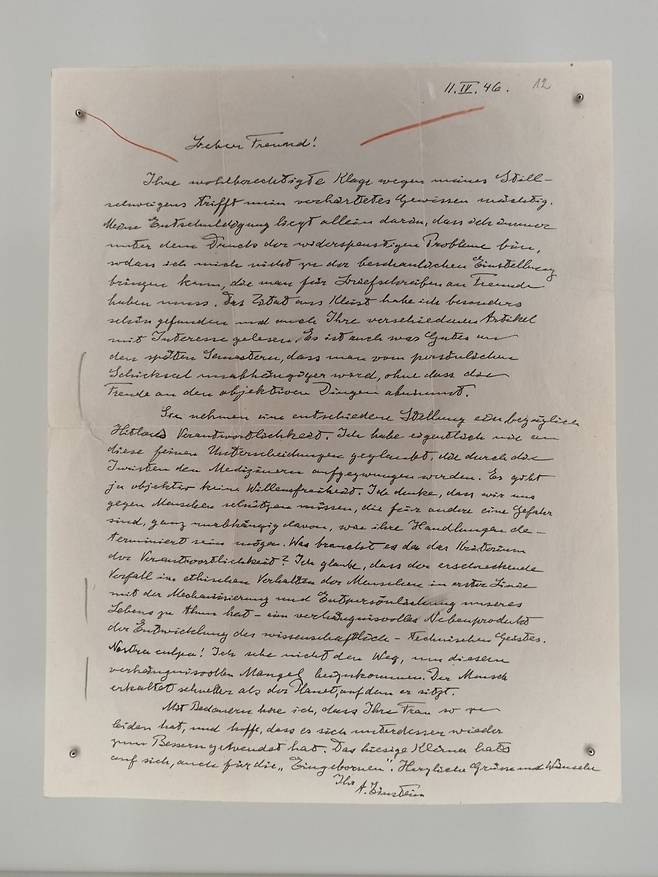 11.IV.46. 12
Lieber Freund!
Ihre wohlberechtigte Klage wegen meines Still-
schweigens trifft mein verhärtetes Gewissen mächtig.
Meine Entschuldigung liegt allein darin, dass ich immer
unter dem Druck der widerspenstigen Probleme bin,
sodass ich mich nicht zu der beschaulichen Einstellung
bringen kann, die man für Briefschreiben an Freunde
haben muss. Das Zitat aus Kleist habe ich besonders
schön gefunden und auch Ihre verschiedenen Artikel
mit Interesse gelesen. Es ist auch was Gutes an
den späten Semestern, dass man vom persönlichen
Schicksal unabhängiger ward, ohne dass die
Freude an den objektiven Dingen abnimmt.
Sie nehmen eine entschiedene Stellung ein bezüglich
Hitlers Verantwortlichkeit. Ich habe eigentlich nie an
diese feinen Unterscheidungen geglaubt, die durch die
Juristen den Medizinern aufgezwungen werden. Es gibt
ja objektiv keine Willensfreiheit. Ich denke, dass wir uns
gegen Menschen schützen müssen, die für andere eine Gefahr
sind, ganz unabhängig davon, wie ihre Handlungen de-
terminiert sein mögen. Was braucht es da das Kriterium
der Verantwortlichkeit? Ich glaube, dass der erschreckende
Verfall im ethischen Verhalten der Menschen in erster Linie
mit der Mechanisierung und Entpersönlichung unseres
Lebens zu thun hat - ein verhängnisvolles Nebenprodukt
der Entwicklung des wissenschaftlich-technischen Geistes.
Nostra culpa! Ich sehe nicht den Weg, um diesem
verhängnisvollen Mangel beizukommen. Der Mensch
erkaltet schneller als der Planet, auf dem er sitzt.
Mit Bedauern höre ich, dass Ihre Frau so ge-
leiden hat, und hoffe, dass es sich unterdessen wieder
zum Bessern gewendet hat. Das hiesige Klima hats
auf sich, auch für die „Eingebornen". Herzliche Grüsse und Wünsche
Ihr
A. Einstein